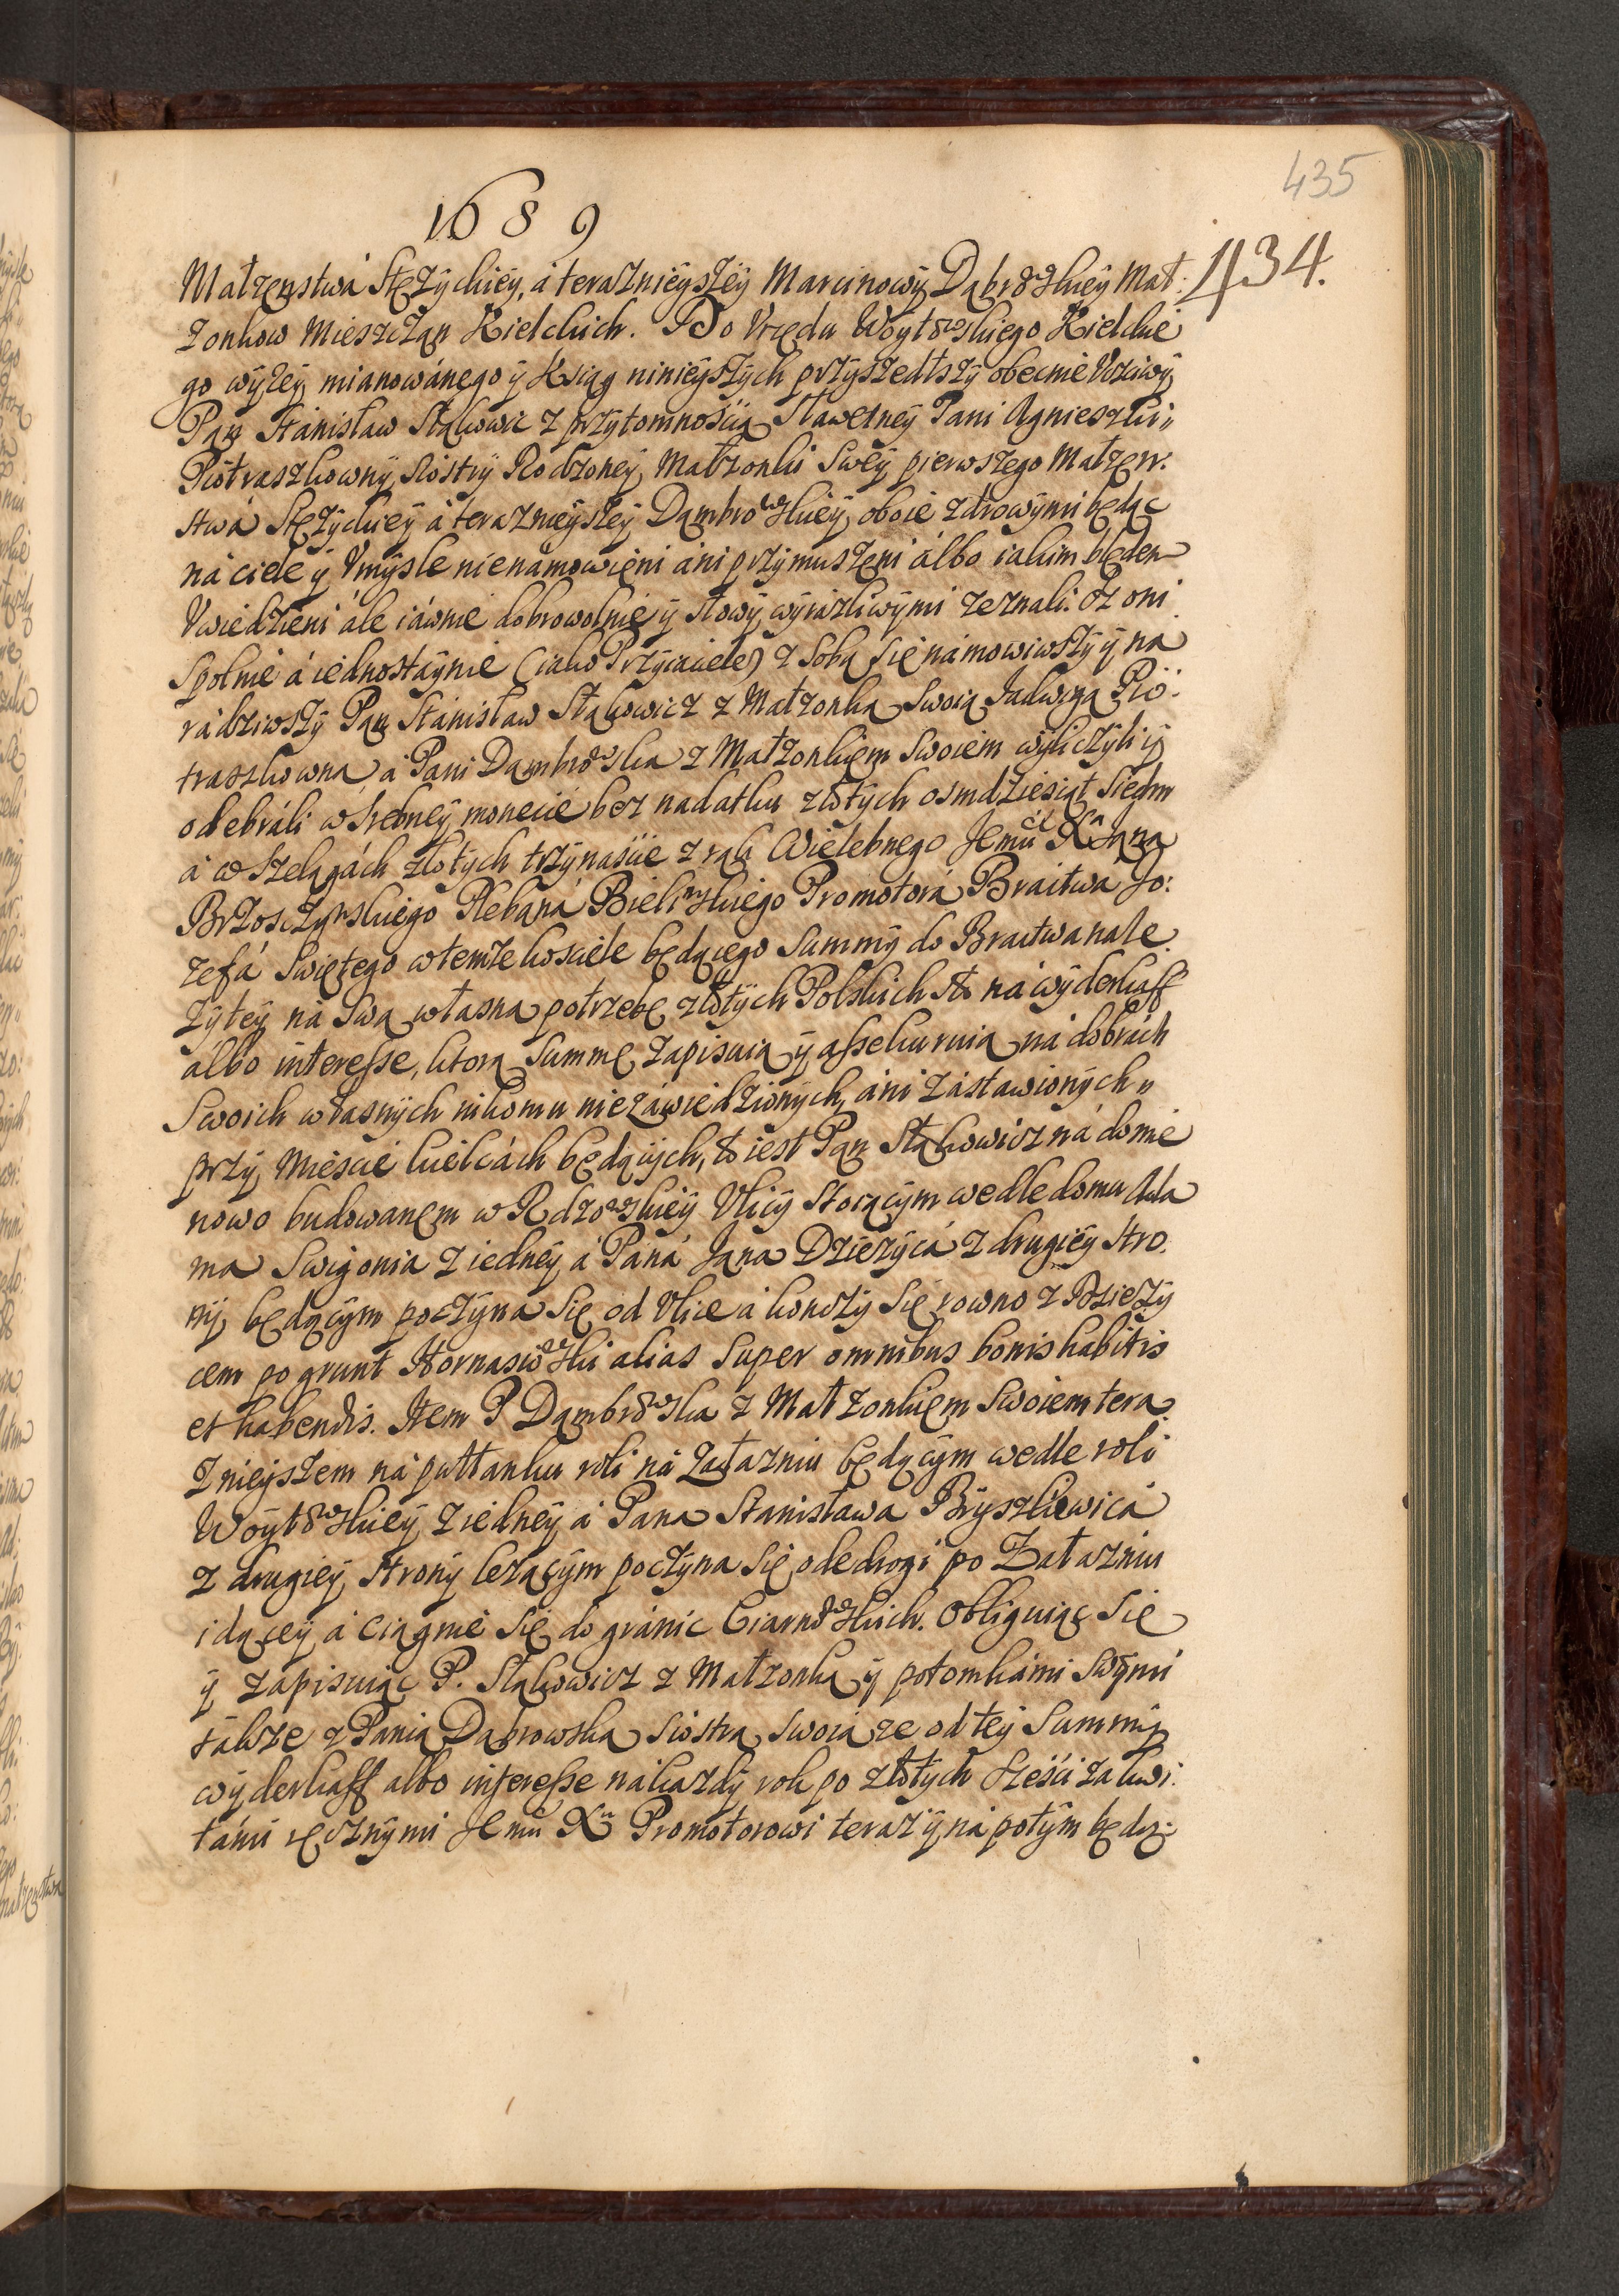 435
1689
434.
Małzenstwá Stęzyckiey, á teraznieyszey Marcinowy Dąbrowskiey Mał:
zonkow Mieszczan Kielckich. Do Vrzędu Woytowskiego Kielckie
go wyzey mianowánego y Ksiąg ninieyszych przyszedszy obecnie Vczciwy
Pan Stánisław Stąkowic z przytomnoscią Sławetney Pani Agnieszki
Piotraszkowny, Siostry Rodzoney, Małzonki Swey pierwszego Małzen:
stwá Stęzyckiey á teraznieyszey Dąmbrowskiey, oboie zdrowymi będąc
ná ciele y Vmysle nienámowieni áni przymuszeni álbo iakim błędem
Vwiedzieni ále iáwnie dobrowolnie y słowy wyrázliwymi zeznali. Iz oni
Spolnie á iednostáynie (iako Przyiaciele) z sobą się námowiwszy y na
rádziwszy Pan Stánisław Stąkowicz z Małzonką Swoią Jadwigą Pio:
traszkowną, á Pani Dąmbrowska z Małzonkiem Swoiem wyliczyli y
odebráli w srebney monecie bez nadatku złotych osmdziesiąt siedm
á w szelągách złotych trzynascie z rąk Wielebnego Jemci X Jana
Brzosczynskiego Plebaná Bielinskiego Promotorá Bractwa Jo:
zefá Swiętego w temze kosciele będącego Summy do Bractwa nale:
zytey ná Swą własną potrzebę złotych Polskich sto ná wyderkaff
álbo interesse, ktorą Summę zapisuią y assekuruią ná dobrách
Swoich własnych nikomu niezáwiedzionych, áni zástawionych
przy Miescie kielcách będących, to iest Pan Stąkowicz ná domie
nowo budowanem w Rdzowskiey Vlicy stoiącym wedle domu Ada
ma Swigonia z iedney á Paná Jana Dziezycá z drugiey stro:
ny, będącym poczyna się od Vlice á konczy się rowno z Dziezy
cem po grunt Stornasiowski alias Super omnibus bonis habitis
et habendis. Item P Dąmbrowska z Małzonkiem Swoiem tera
znieyszem ná pułłanku roli ná Załaznia będącym wedle roli
Woytowskiey z iedney á Pana Stanisława Bryszkiewicá
z drugiey strony lezącym poczyna się ode drogi po Załaznia
idącey á ciągnie się do gránic Czarnowskich. Obliguiąc Się
y zápisuiąc P. Stąkowicz z Małzonką y potomkámi swymi
tákze z Panią Dąbrowską Siostrą Swoią ze od tey Summy
wyderkaff albo interesse ná kazdy rok po złotych szesci za kwi:
támi ręcznymi Jemci Xu Promotorowi teraz y ná potym będz: